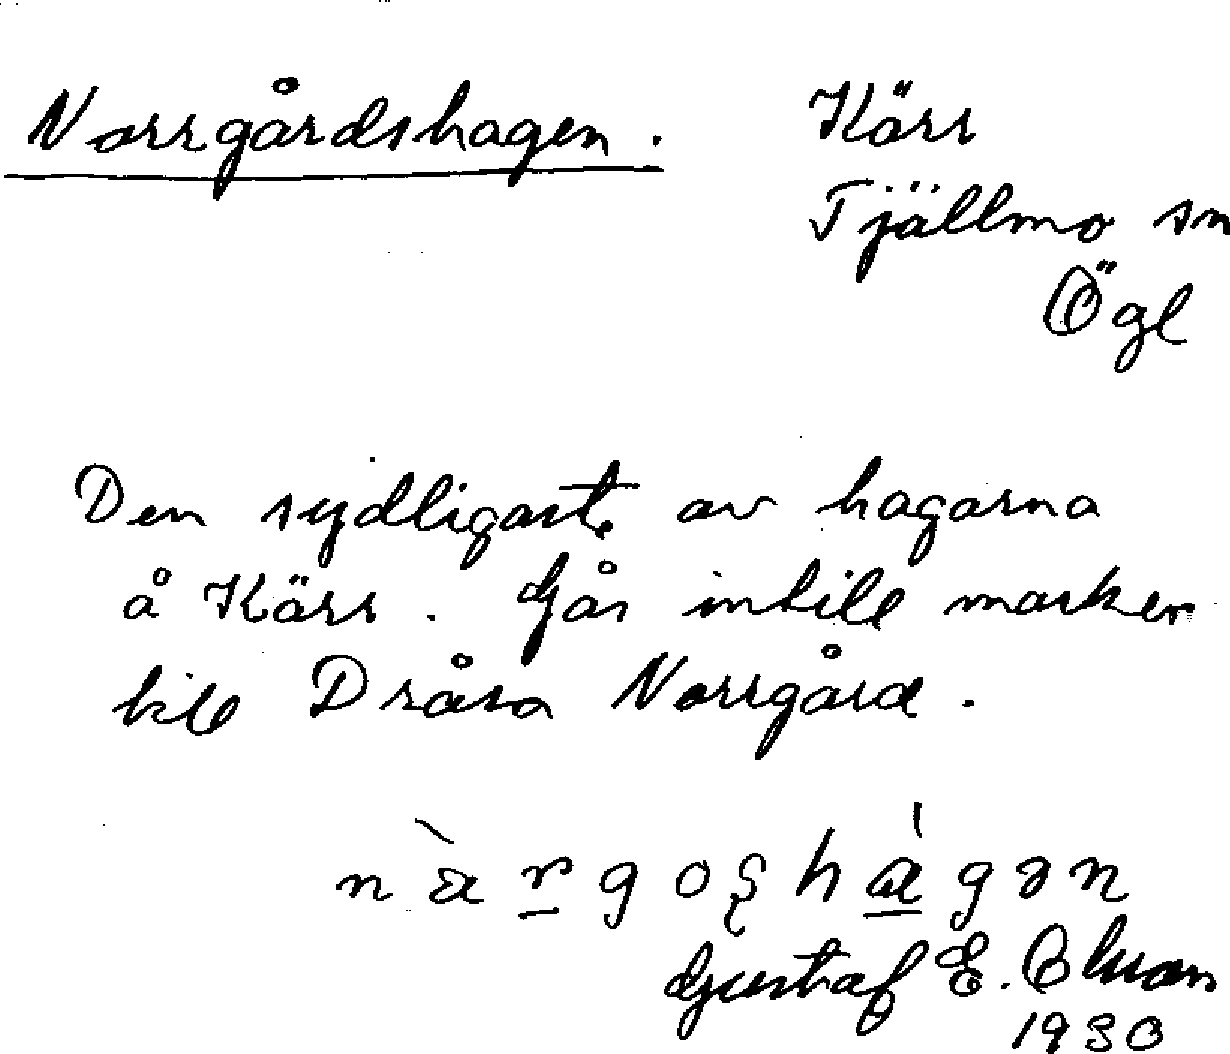 Norrgårdshagen.
Kärr
Tjällmo sn
Ögl
Den sydligaste av hagarna
å Kärr. Går intill marker
till Dråsa Norrgård.
Gustaf E.
1930